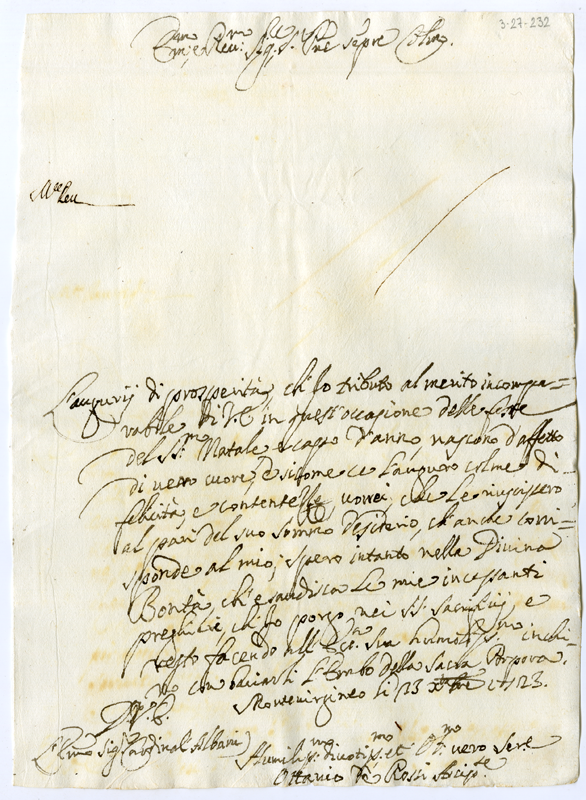 3-27-232
Em.mo e Rev.mo Sig.r Sig.r P.ne sempre Col.mo
L'augurij di prosperità, ch'Io tributo al merito incompa=
rabile di V.E. in quest'occasione delle feste
del SS.mo Natale, e capo d'anno, nascono d'affetto
di vero cuore, e siccome ce L'auguro colme di
felicità, e contentezze vorrei che Le riuscissero
al pari del suo sommo desiderio, ch'anche corri=
sponde al mio; spero intanto nella Divina
Bontà, ch'esaudisca Le mie incessanti
preghiere, ch'Io porgo nei SS. Sacrificij, e
resto facendo all' Em.za Sua humiliss.mo inchi=
no con baciarli L'Lembo della Sacra Porpora.
Montevirgineo li 13 1723.
D. V. E.
Em.mo Sig. Cardinal Albani
Humiliss.mo devotiss.mo et Obl.mo vero Serv.e
Ottavio De Rossi Arcip.te